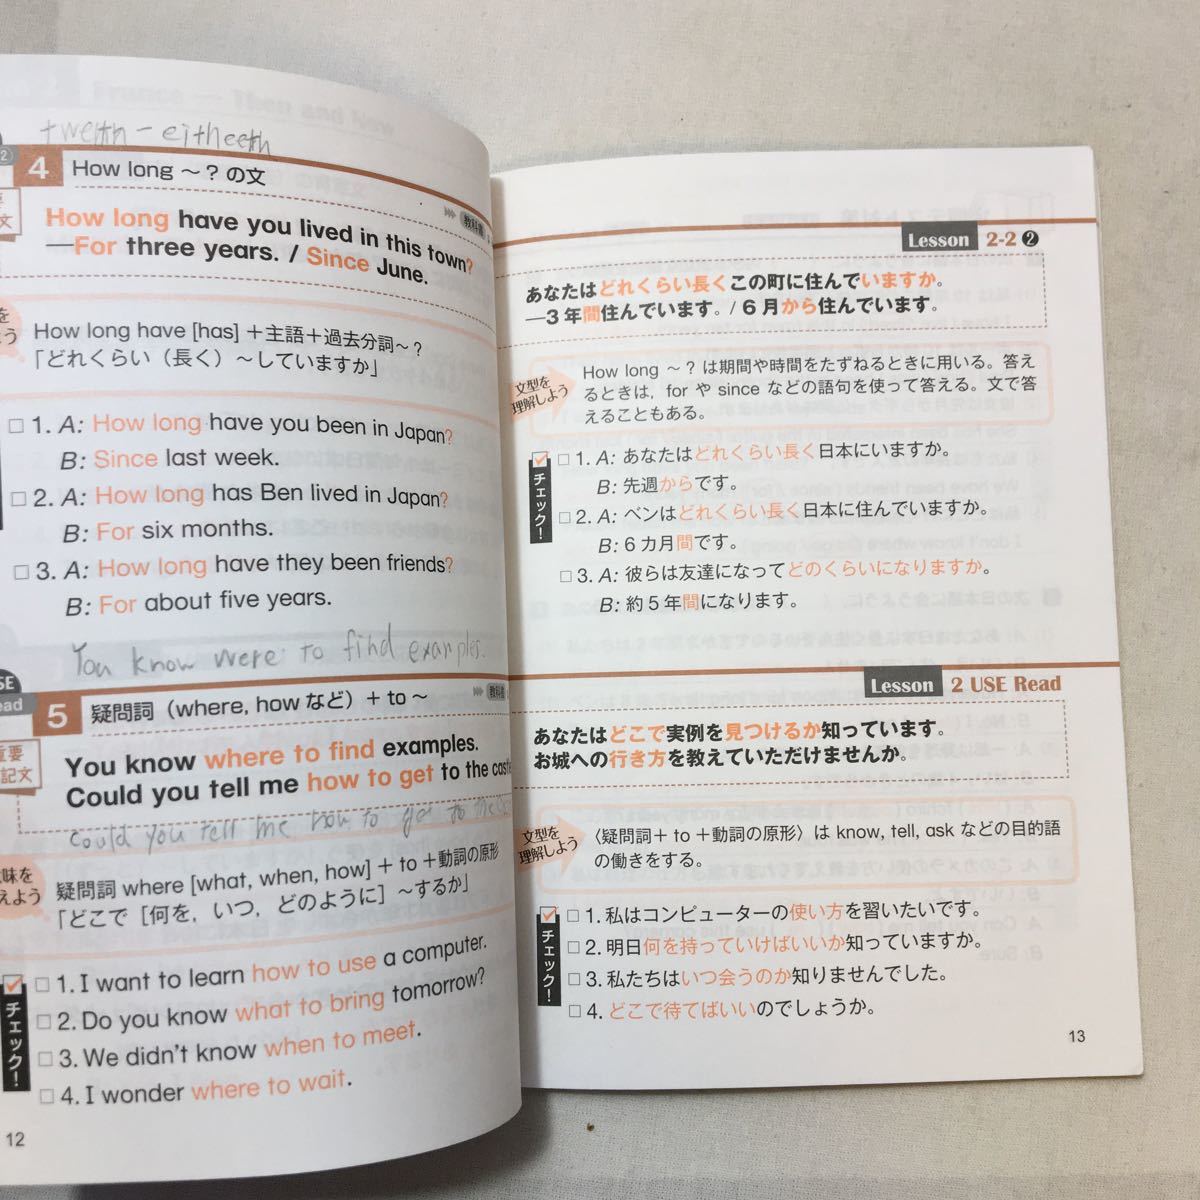 France — Then and Now
twelth - eitheeth
4 How long ～ ? の文
教科書
How long have you lived in this town?
—For three years. / Since June.
How long have [has] ＋主語＋過去分詞～ ?
「どれくらい（長く）～していますか」
□ 1. A: How long have you been in Japan?
B: Since last week.
□ 2. A: How long has Ben lived in Japan?
B: For six months.
□ 3. A: How long have they been friends?
B: For about five years.
You know were to find examples.
5 疑問詞（where, how など）＋ to ～
教科書
重要
You know where to find examples.
Could you tell me how to get to the
could you tell me how to get to the
疑問詞 where [what, when, how] ＋ to ＋動詞の原形
「どこで［何を，いつ，どのように］～するか」
チェック！
□ 1. I want to learn how to use a computer.
□ 2. Do you know what to bring tomorrow?
□ 3. We didn't know when to meet.
□ 4. I wonder where to wait.
12
Lesson 2-2 ❷
あなたはどれくらい長くこの町に住んでいますか。
—３年間住んでいます。/ ６月から住んでいます。
文型を
理解しよう
How long ～ ? は期間や時間をたずねるときに用いる。答え
るときは，for や since などの語句を使って答える。文で答
えることもある。
チェック！
□ 1. A: あなたはどれくらい長く日本にいますか。
B: 先週からです。
□ 2. A: ベンはどれくらい長く日本に住んでいますか。
B: ６カ月間です。
□ 3. A: 彼らは友達になってどのくらいになりますか。
B: 約５年間になります。
Lesson 2 USE Read
あなたはどこで実例を見つけるか知っています。
お城への行き方を教えていただけませんか。
文型を
理解しよう
〈疑問詞＋ to ＋動詞の原形〉は know, tell, ask などの目的語
の働きをする。
チェック！
□ 1. 私はコンピューターの使い方を習いたいです。
□ 2. 明日何を持っていけばいいか知っていますか。
□ 3. 私たちはいつ会うのか知りませんでした。
□ 4. どこで待てばいいのでしょうか。
13